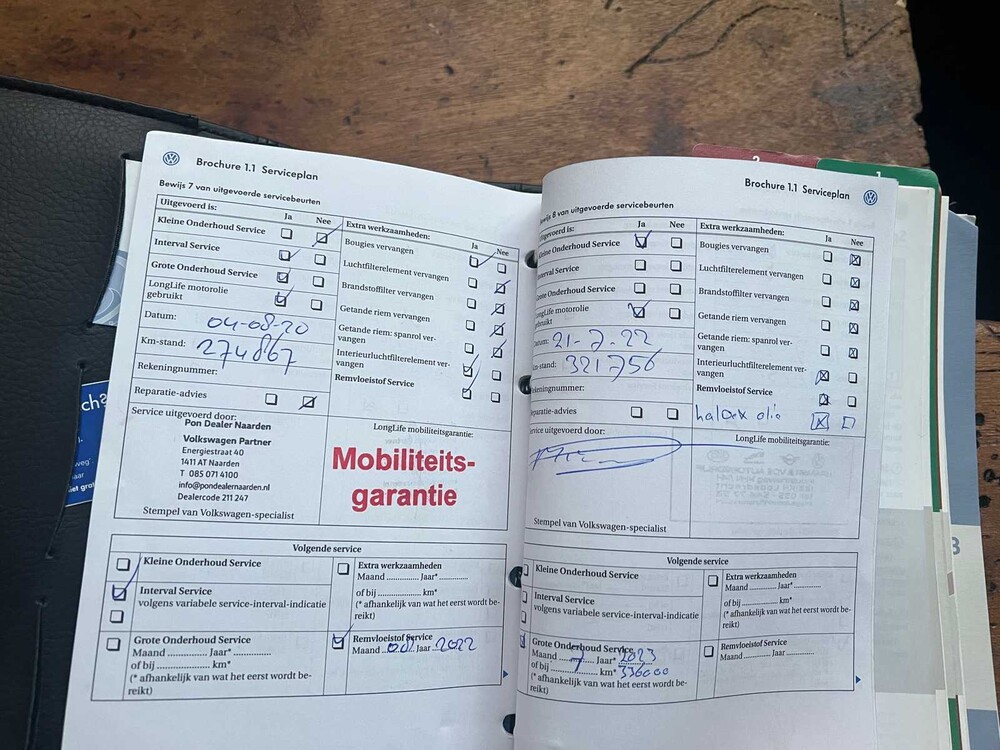 Brochure 1.1 Serviceplan
Bewijs 7 van uitgevoerde servicebeurten
Uitgevoerd is:
Ja
Nee
Kleine Onderhoud Service
Interval Service
Grote Onderhoud Service
LongLife motorolie
gebruikt
Datum: 04-08-20
Km-stand: 274867
Rekeningnummer:
Reparatie-advies
Extra werkzaamheden:
Ja
Nee
Bougies vervangen
Luchtfilterelement vervangen
Brandstoffilter vervangen
Getande riem vervangen
Getande riem: spanrol ver-
vangen
Interieurluchtfilterelement ver-
vangen
Remvloeistof Service
Service uitgevoerd door:
Pon Dealer Naarden
Volkswagen Partner
Energiestraat 40
1411 AT Naarden
T 085 071 4100
info@pondealernaarden.nl
Dealercode 211 247
Stempel van Volkswagen-specialist
LongLife mobiliteitsgarantie:
Mobiliteits-
garantie
Volgende service
Kleine Onderhoud Service
Interval Service
volgens variabele service-interval-indicatie
Grote Onderhoud Service
Maand ............ Jaar* ............
of bij .................. km*
(* afhankelijk van wat het eerst wordt be-
reikt)
Extra werkzaamheden
Maand ............ Jaar* ............
of bij .................. km*
(* afhankelijk van wat het eerst wordt be-
reikt)
Remvloeistof Service
Maand 08 Jaar 2022
Brochure 1.1 Serviceplan
Bewijs 8 van uitgevoerde servicebeurten
Uitgevoerd is:
Ja
Nee
Kleine Onderhoud Service
Interval Service
Grote Onderhoud Service
LongLife motorolie
gebruikt
Datum: 21-7-22
Km-stand: 321756
Rekeningnummer:
Reparatie-advies
Extra werkzaamheden:
Ja
Nee
Bougies vervangen
Luchtfilterelement vervangen
Brandstoffilter vervangen
Getande riem vervangen
Getande riem: spanrol ver-
vangen
Interieurluchtfilterelement ver-
vangen
Remvloeistof Service
haldex olie
Service uitgevoerd door:
Stempel van Volkswagen-specialist
LongLife mobiliteitsgarantie:
Volgende service
Kleine Onderhoud Service
Interval Service
volgens variabele service-interval-indicatie
Grote Onderhoud Service
Maand 7 Jaar* 2023
of bij .................. km* 336000
(* afhankelijk van wat het eerst wordt be-
reikt)
Extra werkzaamheden
Maand ............ Jaar* ............
of bij .................. km*
(* afhankelijk van wat het eerst wordt be-
reikt)
Remvloeistof Service
Maand ............ Jaar ............
2
1
3